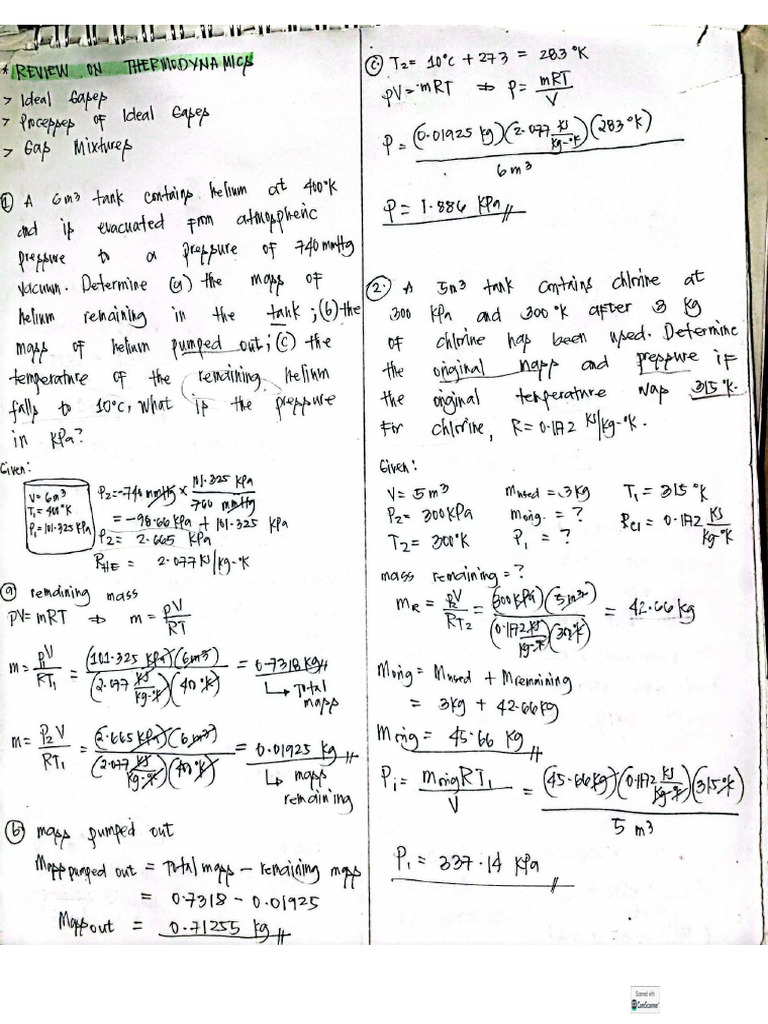 * REVIEW ON THERMODYNAMICS
> Ideal Gases
> Processes of Ideal Gases
> Gas Mixtures
① A 6m³ tank contains helium at 400°K
and is evacuated from atmospheric
pressure to a pressure of 740 mmHg
vacuum. Determine (a) the mass of
helium remaining in the tank; (b) the
mass of helium pumped out; (c) the
temperature of the remaining helium
falls to 10°C, what is the pressure
in kPa?
Given:
V = 6m³
T₁ = 400°K
P₁ = 101.325 kPa
P₂ = -740 mmHg × 101.325 kPa / 760 mmHg
= -98.66 kPa + 101.325 kPa
P₂ = 2.665 kPa
R_HE = 2.077 KJ/kg-°K
ⓐ remaining mass
PV = mRT ⇒ m = PV / RT
m = P₁V / RT₁ = (101.325 kPa)(6m³) / (2.077 KJ/kg-°K)(400°K) = 0.7318 kg
↳ Total
mass
m = P₂V / RT₁ = (2.665 kPa)(6m³) / (2.077 KJ/kg-°K)(400°K) = 0.01925 kg
↳ mass
remaining
ⓑ mass pumped out
Mass pumped out = Total mass - remaining mass
= 0.7318 - 0.01925
Mass out = 0.71255 kg
ⓒ T₂ = 10°C + 273 = 283°K
PV = mRT ⇒ P = mRT / V
P = (0.01925 kg)(2.077 KJ/kg-°K)(283°K) / 6m³
P = 1.886 kPa
②. A 5m³ tank contains chlorine at
300 kPa and 300°K after 3 kg
of chlorine has been used. Determine
the original mass and pressure if
the original temperature was 315°K.
For chlorine, R = 0.1172 KJ/kg-°K.
Given:
V = 5m³ m used = 3kg T₁ = 315°K
P₂ = 300kPa m orig. = ? R_Cl = 0.1172 KJ/kg-°K
T₂ = 300°K P₁ = ?
mass remaining = ?
m_R = P₂V / RT₂ = (300 kPa)(5m³) / (0.1172 KJ/kg-°K)(300°K) = 42.66 kg
Morig = Mused + Mremaining
= 3kg + 42.66kg
Morig = 45.66 kg
P₁ = morig RT₁ / V = (45.66 kg)(0.1172 KJ/kg-°K)(315°K) / 5 m³
P₁ = 337.14 kPa
Scanned with
CamScanner